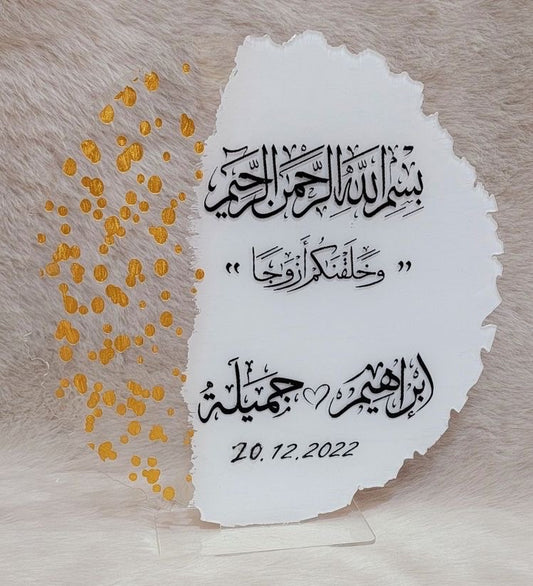 بِسْمِ اللَّهِ الرَّحْمَنِ الرَّحِيمِ
” وَخَلَقْنَكُم أَزْوَجًا “
ابراهيم ♡ جَميلَةُ
20.12.2022